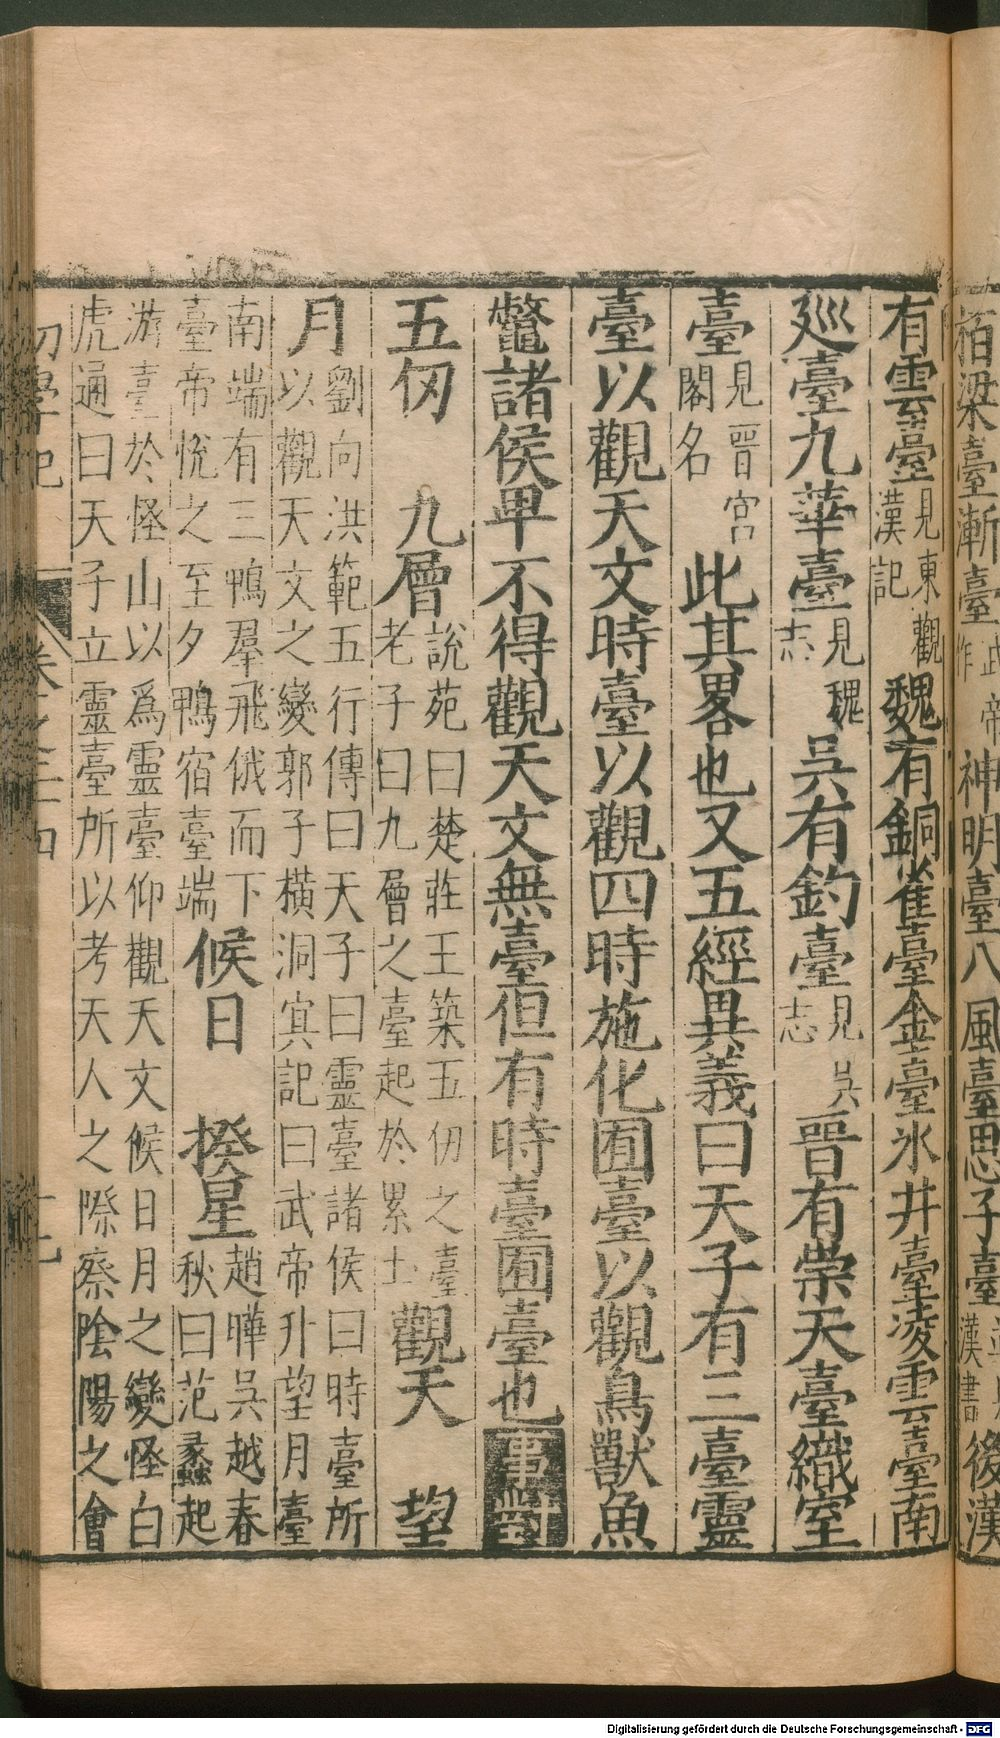 栢梁臺漸臺
神明臺八風臺思子臺
漢書
後漢
有雲臺
見東觀
漢記
魏有銅雀臺金臺氷井臺凌雲臺南
廵臺九華臺
見魏
志
吳有釣臺
見吳
志
晉有崇天臺織室
臺
見晉宮
閣名
此其畧也又五經異義曰天子有三臺靈
臺以觀天文時臺以觀四時施化囿臺以觀鳥獸魚
鼈諸侯卑不得觀天文無臺但有時臺囿臺也
事對
五仞　九層
說苑曰楚莊王築五仞之臺
老子曰九層之臺起於累土
觀天　望
月
劉向洪範五行傳曰天子曰靈臺諸侯曰時臺所
以觀天文之變郭子橫洞冥記曰武帝升望月臺
南端有三鴨羣飛俄而下
臺帝悅之至夕鴨宿臺端
候日　揆星
趙曄吳越春
秋曰范蠡起
游臺於怪山以爲靈臺仰觀天文候日月之變怪白
虎通曰天子立靈臺所以考天人之際察陰陽之會
初學記
卷之二十四
Digitalisierung gefördert durch die Deutsche Forschungsgemeinschaft - DFG